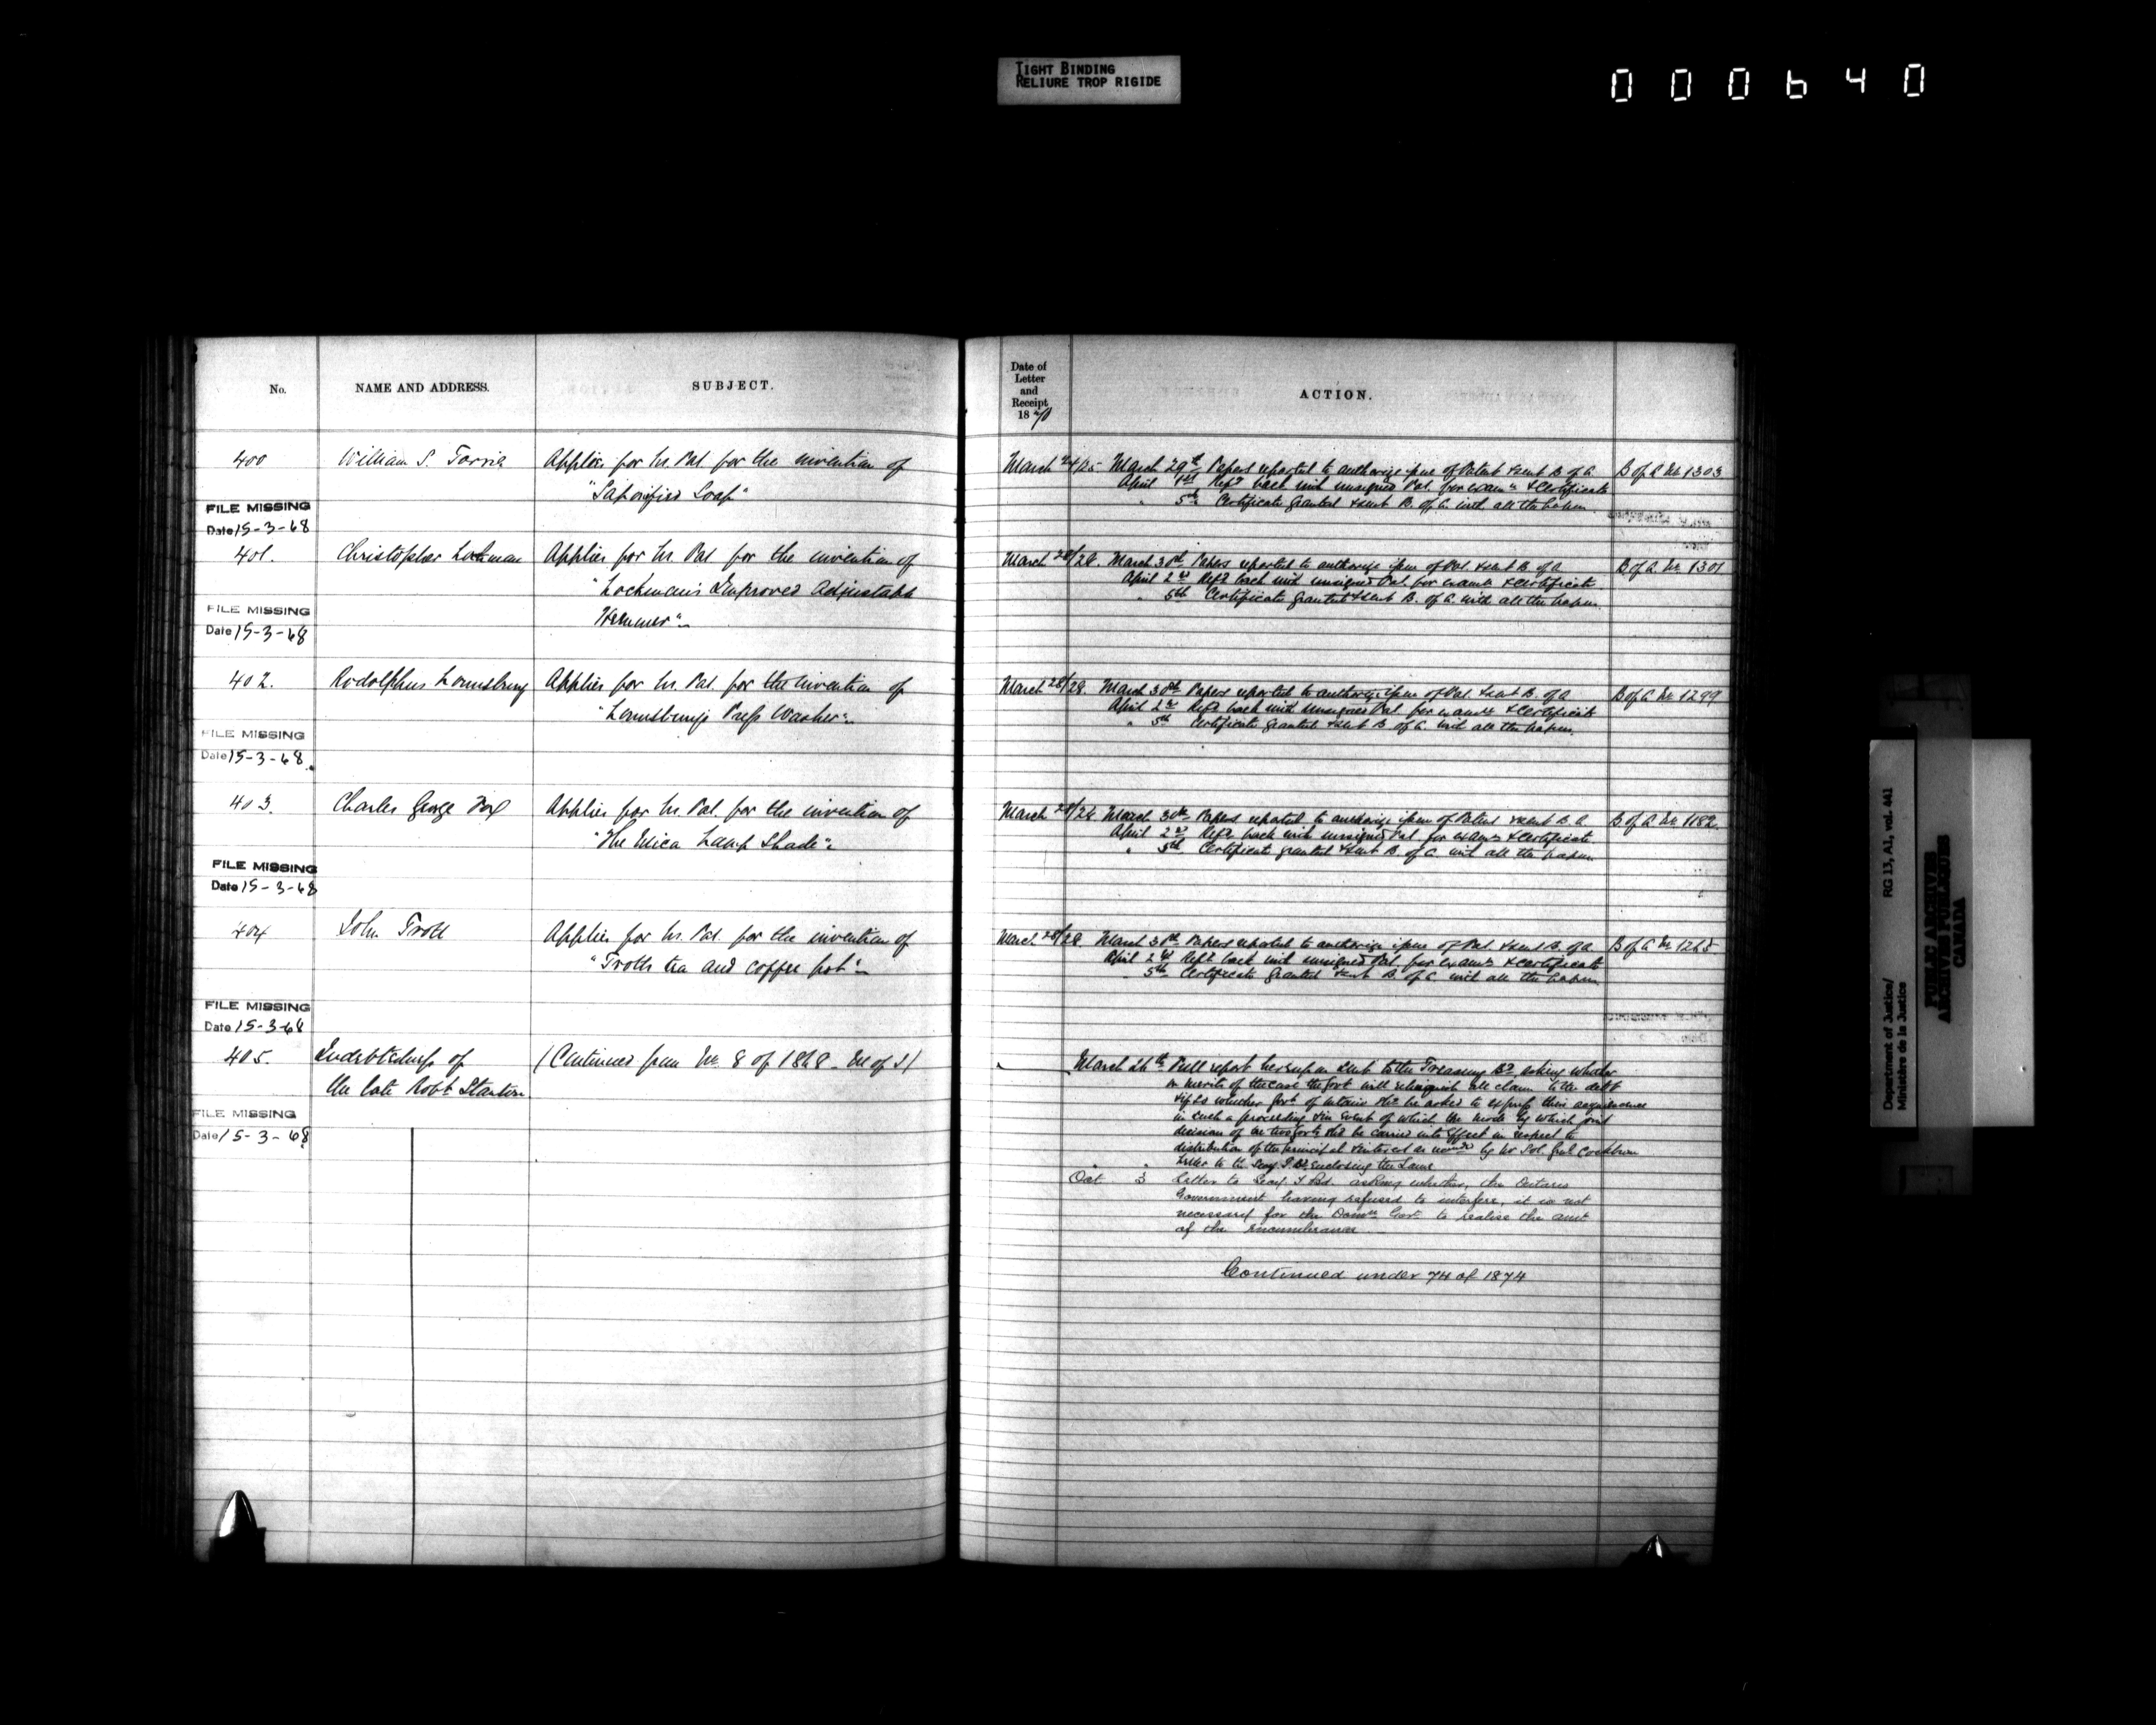 TIGHT BINDING
RELIURE TROP RIGIDE
000640
No.
NAME AND ADDRESS.
SUBJECT.
Date of
Letter
and
Receipt
1870
ACTION.
400
William S. Torrie
Applies for Lrs. Pat. for the invention of
"Saponified Soap"
March 24/25
March 29th Papers reported to authorize issue of Patent & sent B. of A.
April 1st Ref'd back with unsigned Pat. for exam'n & Certificate
" 5th Certificate granted & sent B. of A. with all the papers
B of A No 1303
FILE MISSING
Date 15-3-68
401.
Christopher Lochman
Applies for Lrs. Pat. for the invention of
"Lochman's Improved Adjustable
Hemmer"
March 28/28.
March 30th Papers reported to authorize issue of Pat. & sent B. of A
April 2nd Ref'd back with unsigned Pat. for exam'n & Certificate
" 5th Certificate granted & sent B. of A. with all the papers.
B of A. No 1301
FILE MISSING
Date 15-3-68
402.
Rodolphus Lounsbury
Applies for Lrs. Pat. for the invention of
"Lounsbury's Press Washer".
March 28/28.
March 30th Papers reported to authorize issue of Pat. & sent B. of A
April 2nd Ref'd back with unsigned Pat. for exam'n & Certificate
" 5th Certificate granted & sent B. of A. with all the papers.
B of A No 1299
FILE MISSING
Date 15-3-68
403.
Charles George Fox
Applies for Lrs. Pat. for the invention of
"The Mica Lamp Shade".
March 28/28
March 30th Papers reported to authorize issue of Patent & sent B. A
April 2nd Ref'd back with unsigned Pat. for exam'n & Certificate
" 5th Certificate granted & sent B. of A. with all the papers
B of A No 1182.
FILE MISSING
Date 15-3-68
404
John Trott
Applies for Lrs. Pat. for the invention of
"Trotts tea and coffee pot".
March 28/28
March 30th Papers reported to authorize issue of Pat. & sent B. of A.
April 2nd Ref'd back with unsigned Pat. for exam'n & Certificate
5th Certificate granted & sent B. of A. with all the papers
B of A No 1265.
FILE MISSING
Date 15-3-68
405.
Indebtedness of
the late Robt Stanton
(Continued from No. 8 of 1868 - M of J)
March 26th Full report hereupon sent to the Treasury Bd. asking whether
on merits of the case the Govt will relinquish all claim to the debt
& if so whether Govt of Ontario shd be asked to express their acquiescence
in such a proceeding & in event of which the mode by which joint
decision of the two Govts shd be carried into effect in respect to
distribution of the principal & interest as by Mr Sol. Genl Cockburn
" " Letter to the Secy T. Bd. enclosing the same
Oct 3 Letter to Secy T. Bd. asking whether, the Ontario
Government having refused to interfere, it is not
necessary for the Domn Govt to realise the amt
of the incumbrance
FILE MISSING
Date 15-3-68
Continued under 74 of 1874
Department of Justice/
Ministère de la Justice
RG 13, A1, vol. 441
PUBLIC ARCHIVES
ARCHIVES PUBLIQUES
CANADA